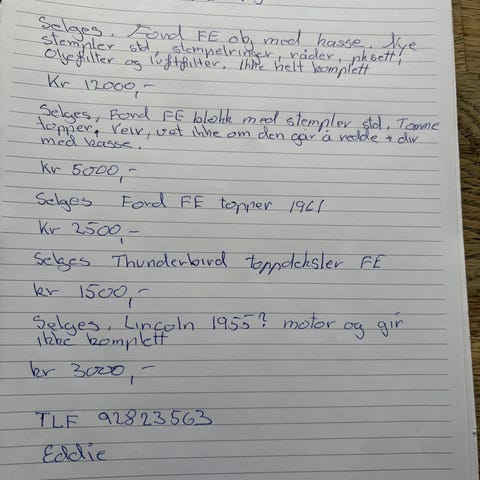 Selges. Ford FE ob, med kasse. Nye
stempler std, stempelringer, råder, pksett,
Oljefilter og luftfilter. Ikke helt komplett
Kr 12000,-
Selges, Ford FE blokk med stempler std. Tomme
topper. Veiv, vet ikke om den går å redde + div
med kasse.
Kr 5000,-
Selges Ford FE topper 1961
Kr 2500,-
Selges Thunderbird toppdeksler FE
kr 1500,-
Selges. Lincoln 1955? motor og gir
ikke komplett
kr 3000,-
TLF 92823563
Eddie